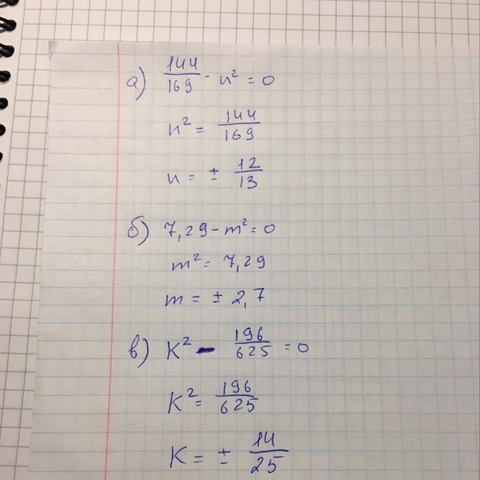 а) 144/169 - n² = 0
n² = 144/169
n = ± 12/13
б) 7,29 - m² = 0
m² = 7,29
m = ± 2,7
в) K² - 196/625 = 0
K² = 196/625
K = ± 14/25